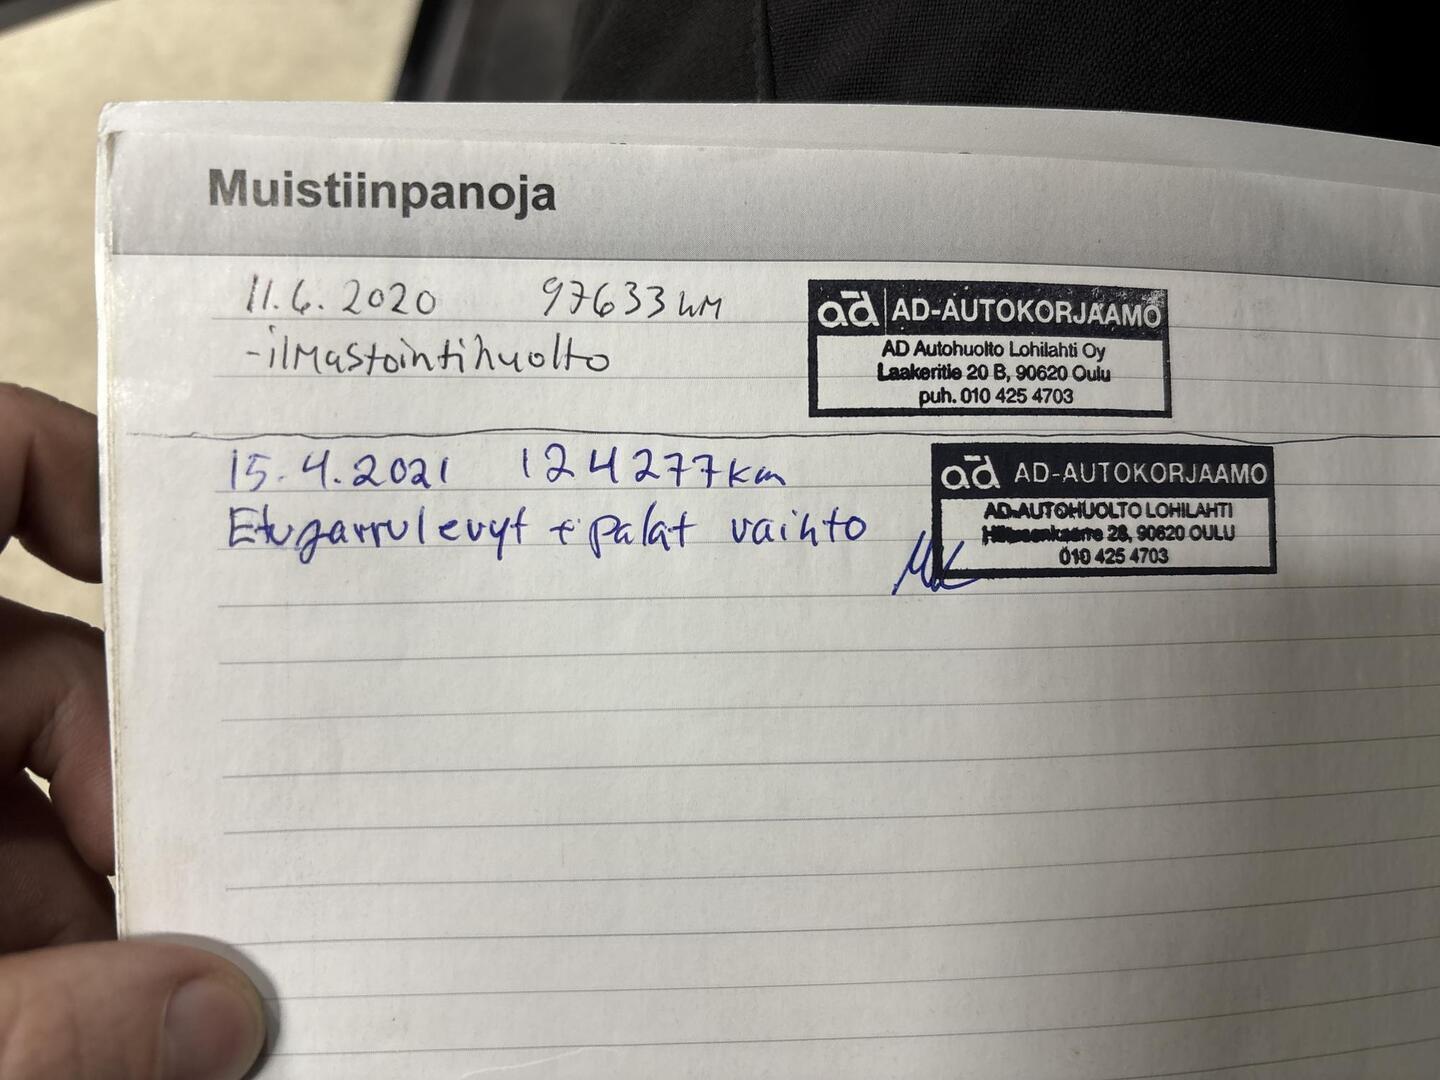 Muistiinpanoja
11.6.2020 97633 km
-ilmastointihuolto
ad AD-AUTOKORJAAMO
AD Autohuolto Lohilahti Oy
Laakeritie 20 B, 90620 Oulu
puh. 010 425 4703
15.4.2021 124277km
Etujarrulevyt + palat vaihto
ad AD-AUTOKORJAAMO
AD-AUTOHUOLTO LOHILAHTI
28, 90620 OULU
010 425 4703